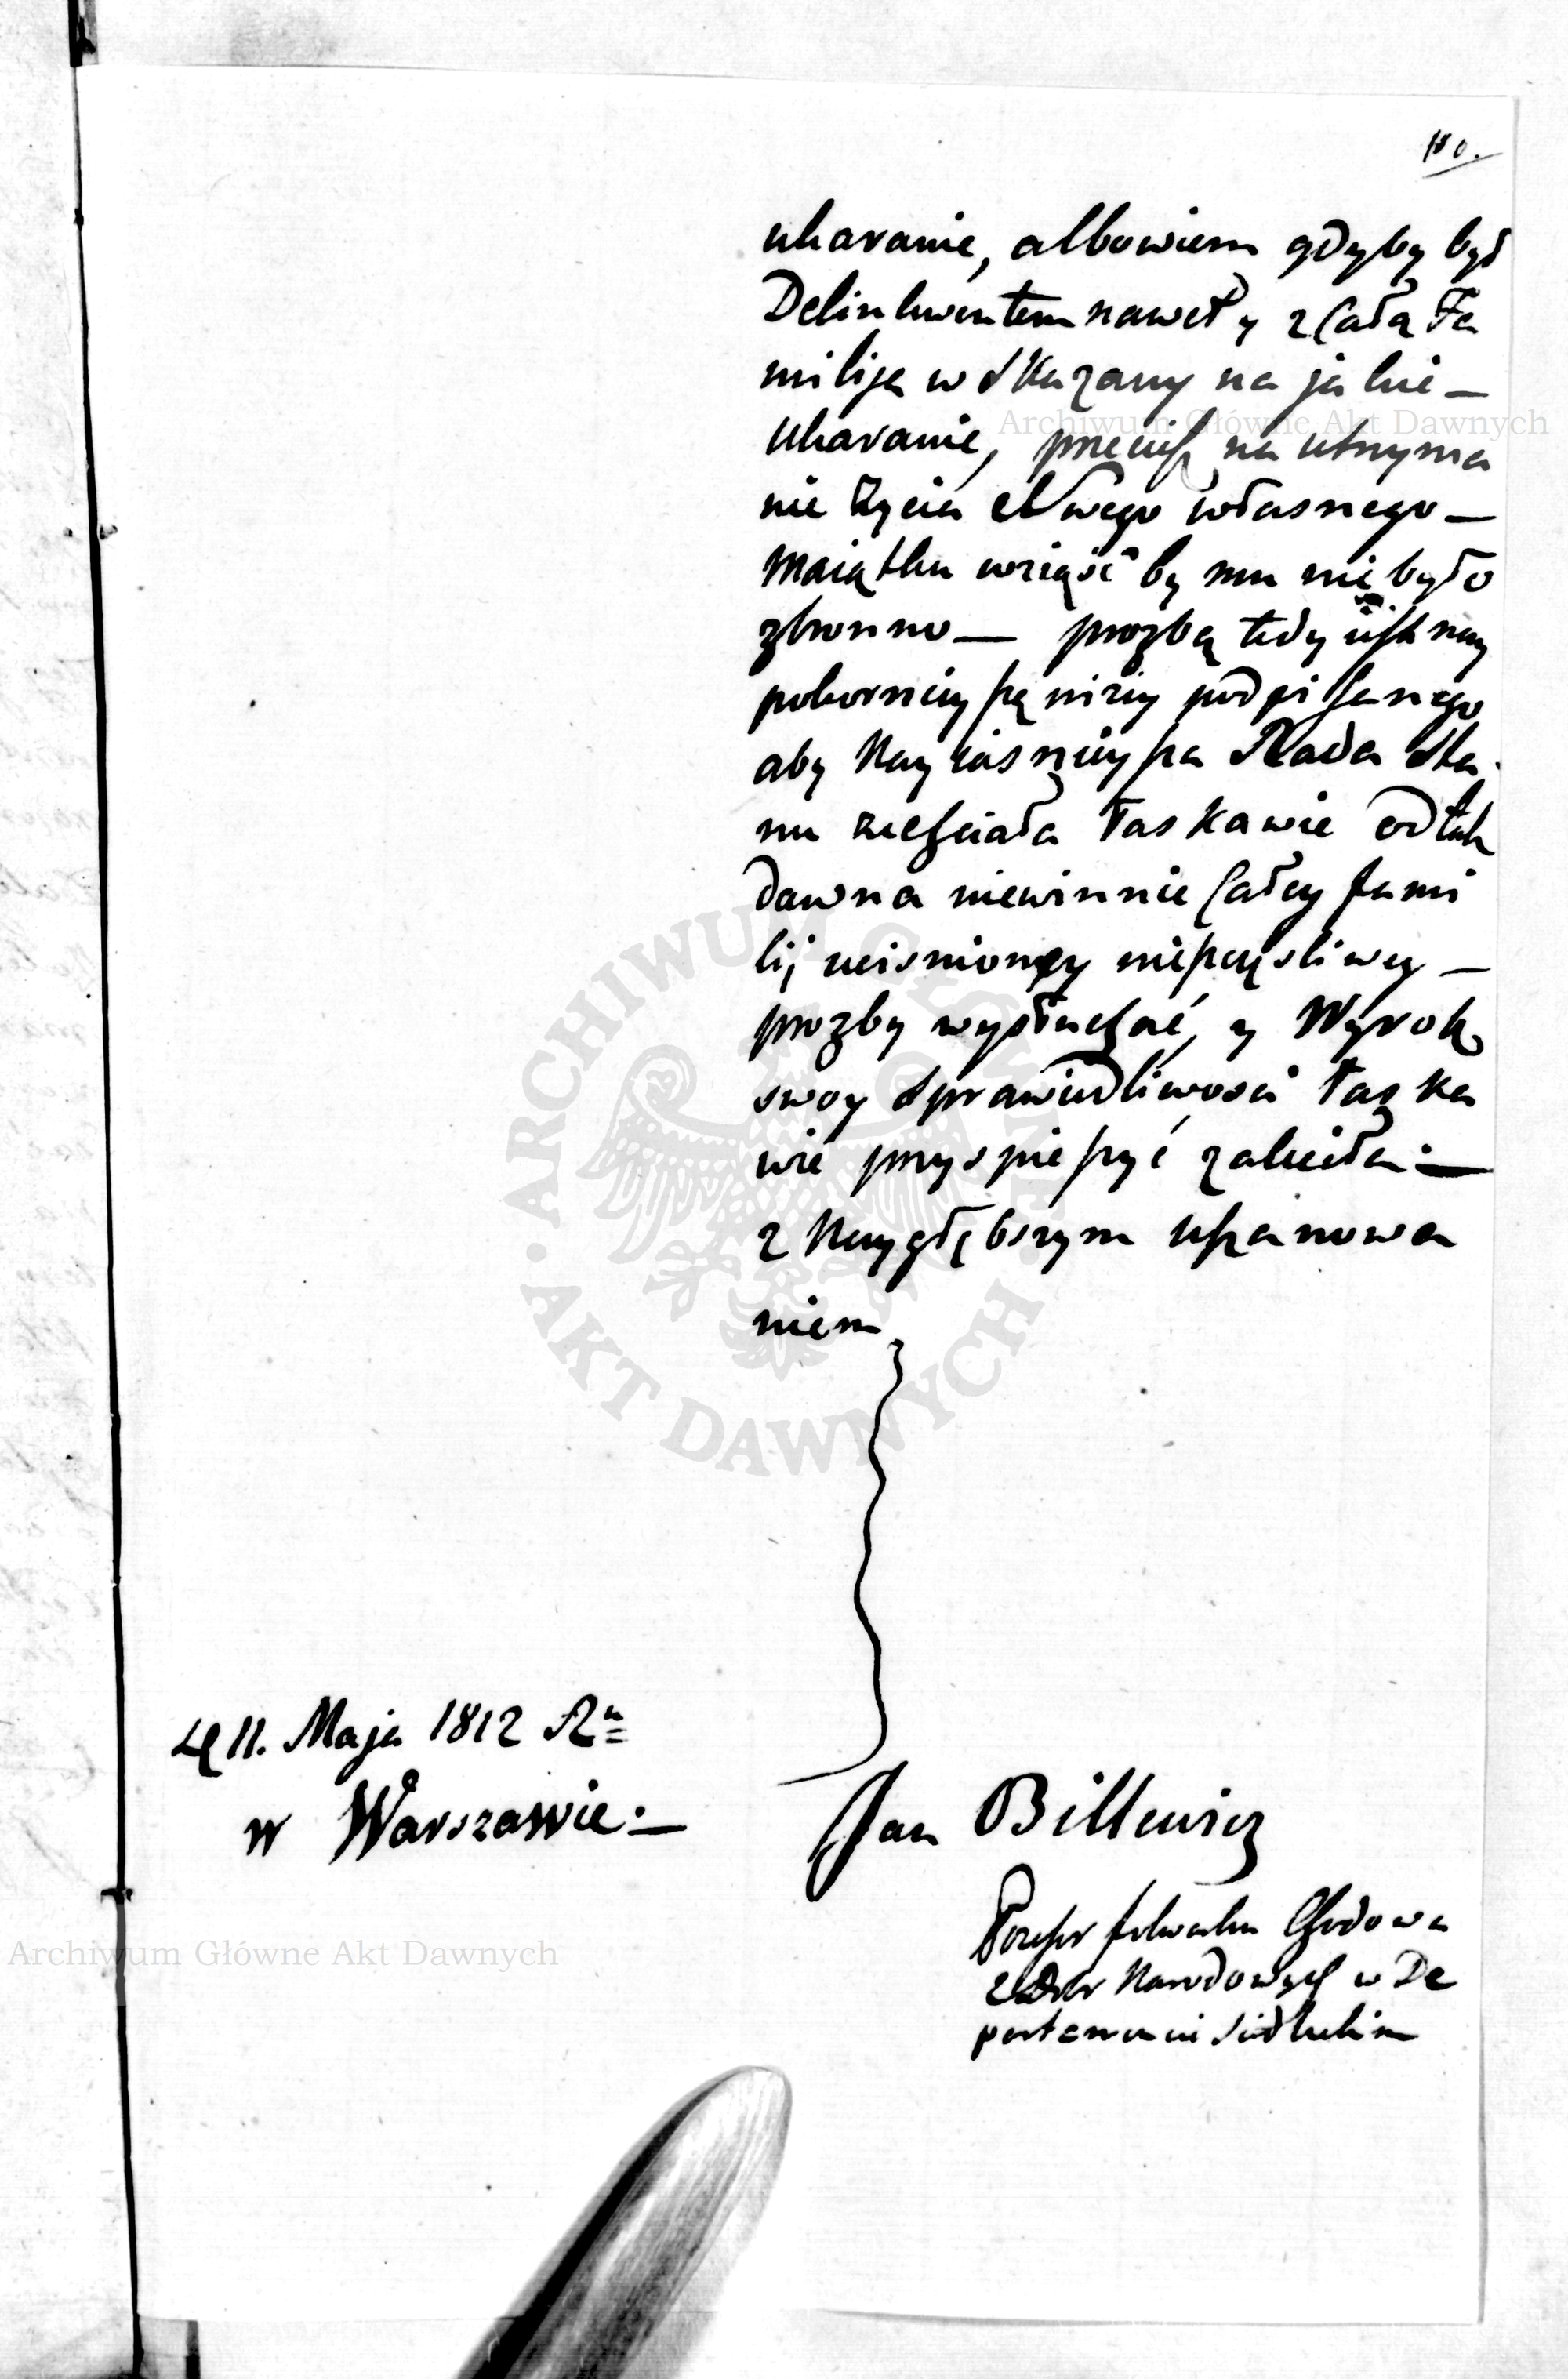 180.
ukaranie, albowiem gdyby był
Delinkwentem nawet y z Całą Fa
milija wskazany na jakie —
ukaranie, przecięsz na utrzyma
nie Życia Swego własnego —
Maiątku wziąść by mu nie było
zbronno — prozbą tedy iest nay
pokornieyszą niżey podpisanego
aby Nayiasnieysza Rada Sta
nu zechciała Łaskawie od tak
dawna niewinnie Całey fami
lij ucisnioney nieszczęsliwey —
prozby wysłuchać, y Wyrok
swoy Sprawiedliwosci Łaska
wie przyspieszyć zaleciła. —
z Naygłębszym uszanowa
niem
d 11. Maja 1812 Ru
w Warszawie. —
Jan Billewicz
Possesor folwarku Chodowa
z Dobr Narodowych w De
partamencie Siedleckim
Archiwum Główne Akt Dawnych
Archiwum Główne Akt Dawnych
ARCHIWUM GŁÓWNE · AKT DAWNYCH ·